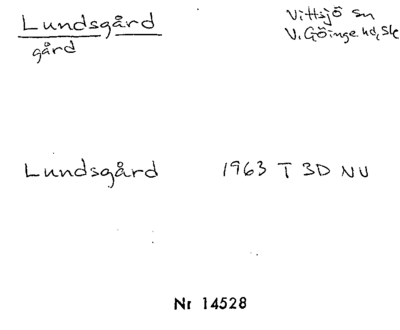 Lundsgård
gård
Vittsjö sn
V. Göinge hd, Sk
Lundsgård 1963 T 3D NV
Nr 14528